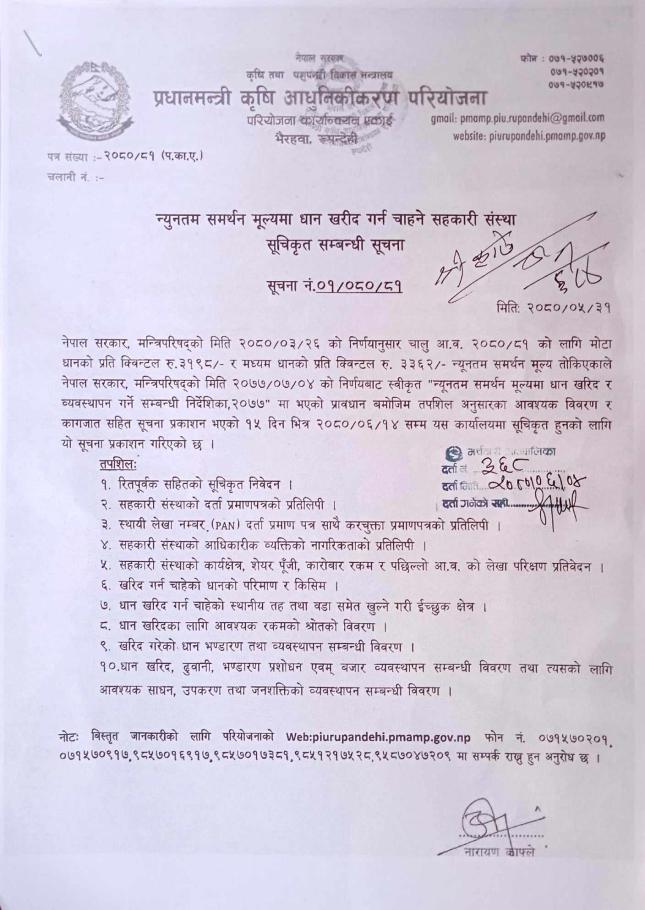 नेपाल सरकार
कृषि तथा पशुपन्छी विकास मन्त्रालय
प्रधानमन्त्री कृषि आधुनिकीकरण परियोजना
परियोजना कार्यान्वयन एकाई
भैरहवा, रूपन्देही
फोन : ०७१-५२७००६
०७१-५२०२०१
०७१-५२०९१७
gmail: pmamp.piu.rupandehi@gmail.com
website: piurupandehi.pmamp.gov.np
पत्र संख्या :-२०८०/८१ (प.का.ए.)
चलानी नं. :-
न्युनतम समर्थन मूल्यमा धान खरीद गर्न चाहने सहकारी संस्था
सूचिकृत सम्बन्धी सूचना
सूचना नं.०१/०८०/८१
मिति: २०८०/०५/३१
नेपाल सरकार, मन्त्रिपरिषद्को मिति २०८०/०३/२६ को निर्णयानुसार चालु आ.व. २०८०/८१ को लागि मोटा
धानको प्रति क्विन्टल रु.३१९८/- र मध्यम धानको प्रति क्विन्टल रु. ३३६२/- न्यूनतम समर्थन मूल्य तोकिएकाले
नेपाल सरकार, मन्त्रिपरिषद्को मिति २०७७/०७/०४ को निर्णयबाट स्वीकृत "न्यूनतम समर्थन मूल्यमा धान खरिद र
व्यवस्थापन गर्ने सम्बन्धी निर्देशिका,२०७७" मा भएको प्रावधान बमोजिम तपशिल अनुसारका आवश्यक विवरण र
कागजात सहित सूचना प्रकाशन भएको १५ दिन भित्र २०८०/०६/१४ सम्म यस कार्यालयमा सूचिकृत हुनको लागि
यो सूचना प्रकाशन गरिएको छ ।
तपशिल:
दर्ता नं. ३६८
दर्ता मिति २०८०/०६/०४
दर्ता गर्नेको सही
१. रितपूर्वक सहितको सूचिकृत निवेदन ।
२. सहकारी संस्थाको दर्ता प्रमाणपत्रको प्रतिलिपी ।
३. स्थायी लेखा नम्वर (PAN) दर्ता प्रमाण पत्र साथै करचुक्ता प्रमाणपत्रको प्रतिलिपी ।
४. सहकारी संस्थाको आधिकारीक व्यक्तिको नागरिकताको प्रतिलिपी ।
५. सहकारी संस्थाको कार्यक्षेत्र, शेयर पूँजी, कारोबार रकम र पछिल्लो आ.व. को लेखा परिक्षण प्रतिवेदन ।
६. खरिद गर्न चाहेको धानको परिमाण र किसिम ।
७. धान खरिद गर्न चाहेको स्थानीय तह तथा वडा समेत खुल्ने गरी ईच्छुक क्षेत्र ।
८. धान खरिदका लागि आवश्यक रकमको श्रोतको विवरण ।
९. खरिद गरेको धान भण्डारण तथा व्यवस्थापन सम्बन्धी विवरण ।
१०.धान खरिद, ढुवानी, भण्डारण प्रशोधन एवम् बजार व्यवस्थापन सम्बन्धी विवरण तथा त्यसको लागि
आवश्यक साधन, उपकरण तथा जनशक्तिको व्यवस्थापन सम्बन्धी विवरण ।
नोट: बिस्तृत जानकारीको लागि परियोजनाको Web:piurupandehi.pmamp.gov.np फोन नं. ०७१५७०२०१,
०७१५७०९१७,९८५७०१६९१७,९८५७०१७३८१,९८५१२१७५२८,९८५८७०४७२०९ मा सम्पर्क राख्नु हुन अनुरोध छ ।
नारायण काफ्ले